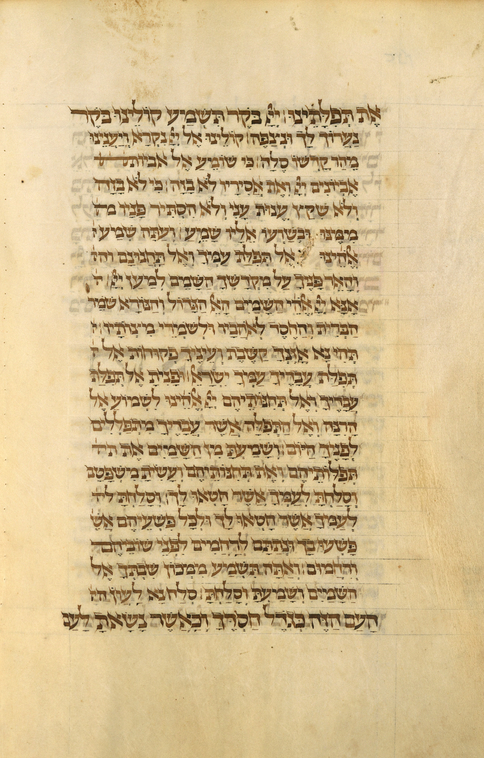 את תפלתינו יי בקר תשמע קולינו בקר
נערוך לך ונצפה קולינו אל יי נקרא ויעננו
מהר קדשו סלה כי שומע אל אביונים
אביונים יי ואת אסיריו לא בזה כי לא בזה
ולא שקץ ענות עני ולא הסתיר פניו
ממנו ובשועו אליו שמע ועתה שמע
אלהינו אל תפלת עבדך ואל תחנוניו
והאר פניך על מקדשך השמם למען יי
אנא יי אלהי השמים האל הגדול והנורא שמר
הברית והחסד לאהביו ולשמרי מצותיו
תהי נא אזנך קשבת ועיניך פקוחות אל
תפלת עבדיך עמך ישראל ופנית אל תפלת
עבדיך ואל תחנותיהם יי אלהינו לשמוע אל
הרנה ואל התפלה אשר עבדיך מתפללים
לפניך היום ושמעת מן השמים את
תפלותיהם ואת תחנותיהם ועשית משפטם
וסלחת לעמך אשר חטאו לך וסלחת
לעמך אשר חטאו לך ולכל פשעיהם
פשעו בך ונתתם לרחמים לפני שוביהם
ורחמום ואתה תשמע ממכון שבתך אל
השמים ושמעת וסלחת סלח נא לעון
העם הזה כגודל חסדך וכאשר נשאתה לעם